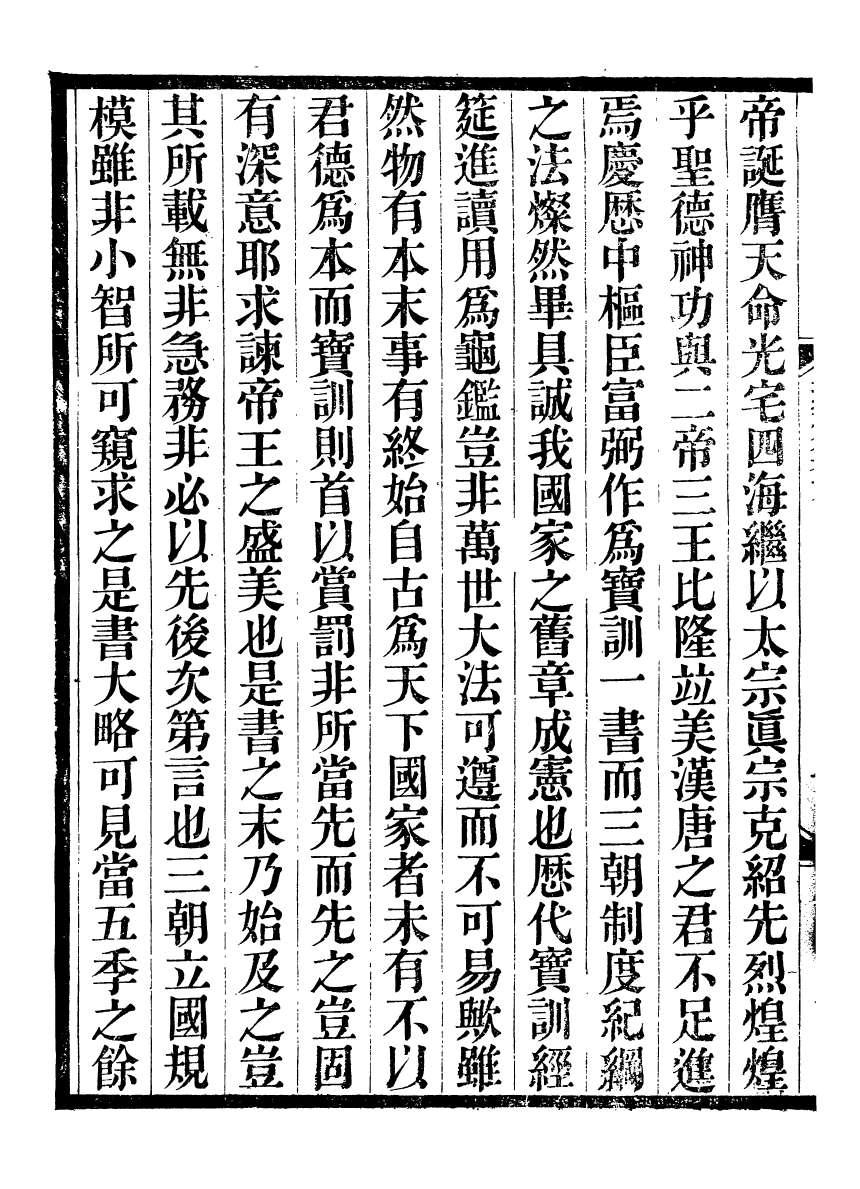 帝誕膺天命光宅四海繼以太宗眞宗克紹先烈煌煌
乎聖德神功與二帝三王比隆竝美漢唐之君不足進
焉慶歷中樞臣富弼作爲寶訓一書而三朝制度紀綱
之法燦然畢具誠我國家之舊章成憲也歷代寶訓經
筵進讀用爲龜鑑豈非萬世大法可遵而不可易歟雖
然物有本末事有終始自古爲天下國家者未有不以
君德爲本而寶訓則首以賞罰非所當先而先之豈固
有深意耶求諫帝王之盛美也是書之末乃始及之豈
其所載無非急務非必以先後次第言也三朝立國規
模雖非小智所可窺求之是書大略可見當五季之餘